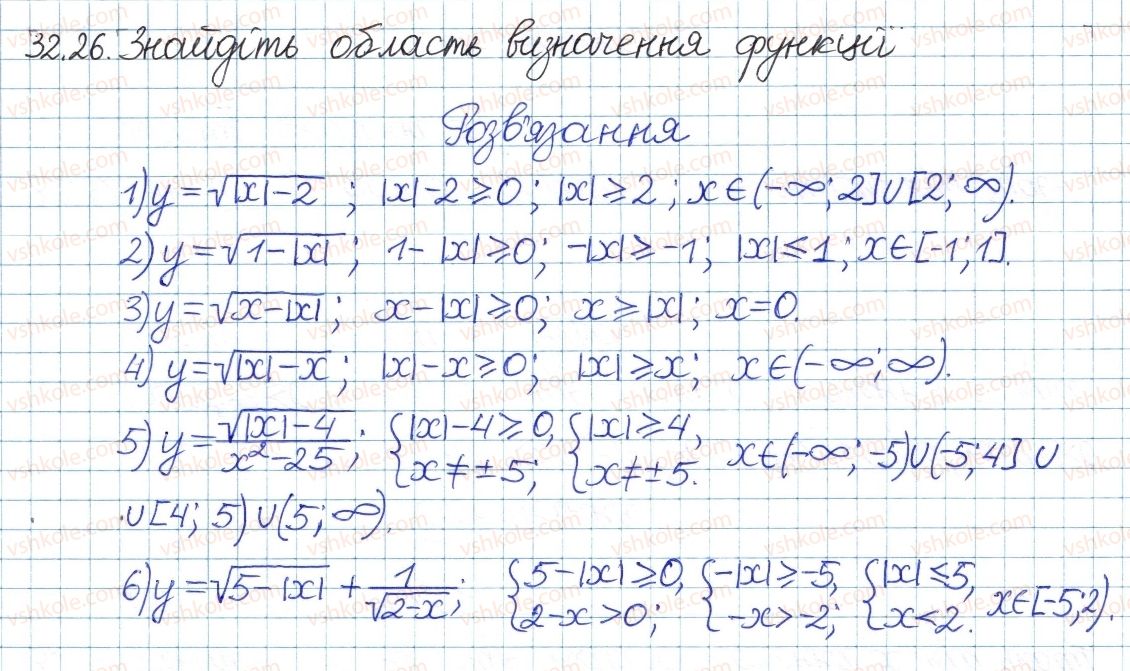 32.26. Знайдіть область визначення функції
Розв'язання
1) y = √|x| - 2 ; |x| - 2 ≥ 0; |x| ≥ 2; x ∈ (-∞; 2] ∪ [2; ∞).
2) y = √1 - |x| ; 1 - |x| ≥ 0; -|x| ≥ -1; |x| ≤ 1; x ∈ [-1; 1].
3) y = √x - |x| ; x - |x| ≥ 0; x ≥ |x|; x = 0.
4) y = √|x| - x ; |x| - x ≥ 0; |x| ≥ x; x ∈ (-∞; ∞).
5) y = √|x| - 4 / x² - 25 ; { |x| - 4 ≥ 0, x ≠ ± 5; { |x| ≥ 4, x ≠ ± 5. x ∈ (-∞; -5) ∪ (-5; 4] ∪
∪ [4; 5) ∪ (5; ∞).
6) y = √5 - |x| + 1 / √2 - x ; { 5 - |x| ≥ 0, 2 - x > 0; { -|x| ≥ -5, -x > -2; { |x| ≤ 5, x < 2. x ∈ [-5; 2).